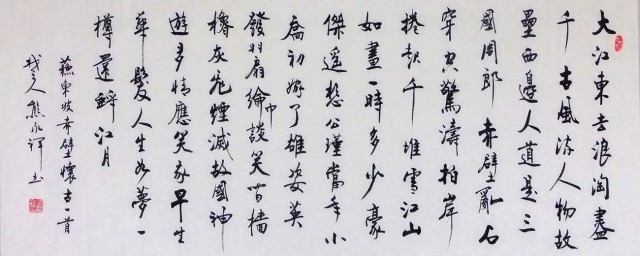 大江東去浪淘盡
千古風流人物故
壘西邊人道是三
國周郎赤壁亂石
穿空驚濤拍岸
捲起千堆雪江山
如畫一時多少豪
傑遥想公瑾當年小
喬初嫁了雄姿英
發羽扇綸巾談笑間檣
櫓灰飛煙滅故國神
遊多情應笑我早生
華髮人生如夢一
樽還酹江月
蘇東坡赤壁懷古一首
人熊